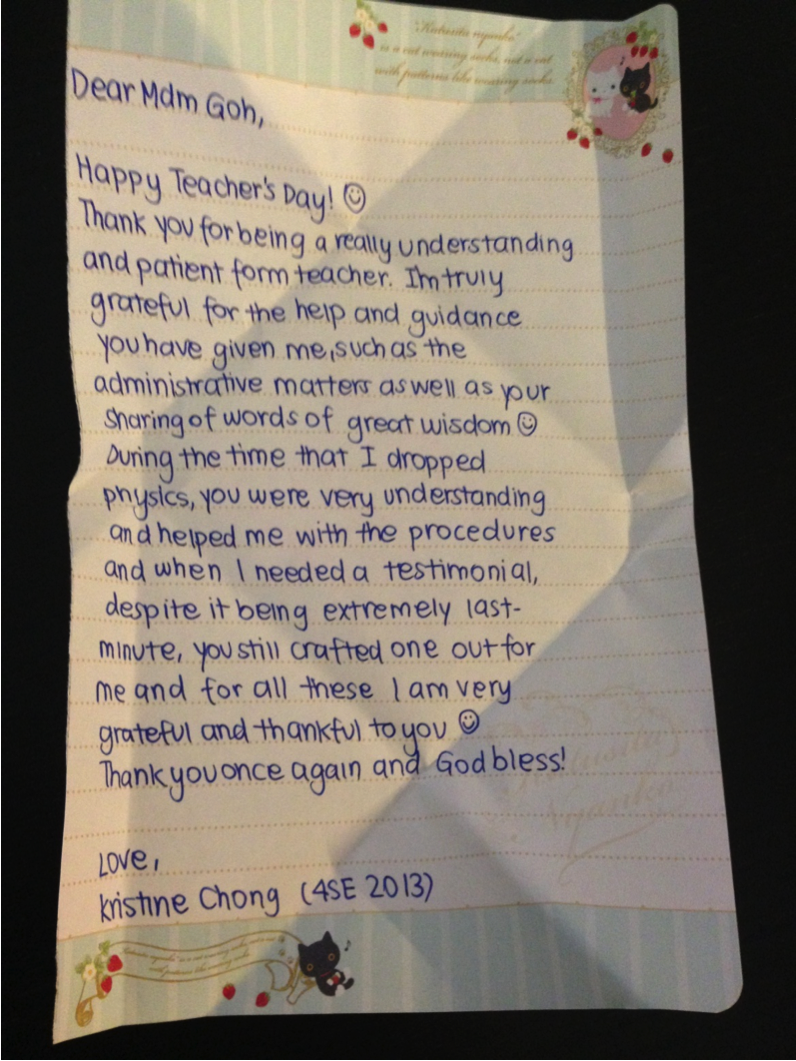 "Kutusita nyanko"
is a cat wearing socks, not a cat
with patterns like wearing socks.
Dear Mdm Goh,
Happy Teacher's Day! ☺
Thank you for being a really understanding
and patient form teacher. I'm truly
grateful for the help and guidance
you have given me, such as the
administrative matters as well as your
sharing of words of great wisdom ☺
During the time that I dropped
physics, you were very understanding
and helped me with the procedures
and when I needed a testimonial,
despite it being extremely last-
minute, you still crafted one out for
me and for all these I am very
grateful and thankful to you ☺
Thank you once again and God bless!
Kutusita
Nyanko
Love,
Kristine Chong (4SE 2013)